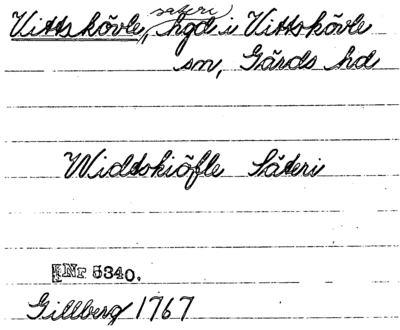 Vittskövle, säteri, hgd i Vittskövle
sn, Gärds hd
Widtskiöfle Säteri
Nr 5340.
Gillberg 1767